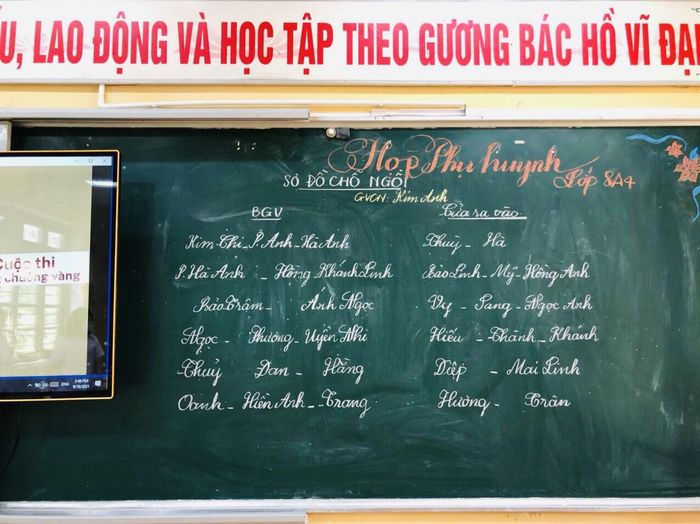 ẤU, LAO ĐỘNG VÀ HỌC TẬP THEO GƯƠNG BÁC HỒ VĨ ĐẠI
Họp Phụ huynh
Lớp 8A4
SƠ ĐỒ CHỖ NGỒI
GVCN: Kim Anh
BGV Cửa ra vào
Kim Chi - P. Anh - Hà Anh Thuỳ - Hà
P. Hà Anh - Hồng Khánh Linh Bảo Linh - Mỹ - Hồng Anh
Bảo Trâm - Anh Ngọc Vy - Sang - Ngọc Anh
Ngọc - Phương - Uyên Nhi Hiếu - Thành - Khánh
Thuỷ Đan - Hằng Diệp - Mai Linh
Oanh - Hiền Anh - Trang Hường - Trân
Cuộc thi
chuông vàng
ENG
2:48 PM